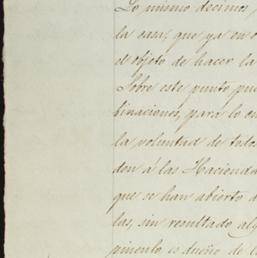 Lo mismo decimos,
la casa, que ya en o
el objeto de hacer la
Sobre este punto pue
binaciones, para lo cu
la voluntad de
don á las Hacienda
que se han abierto a
las, sin resultado alg
pimento es dueño de l